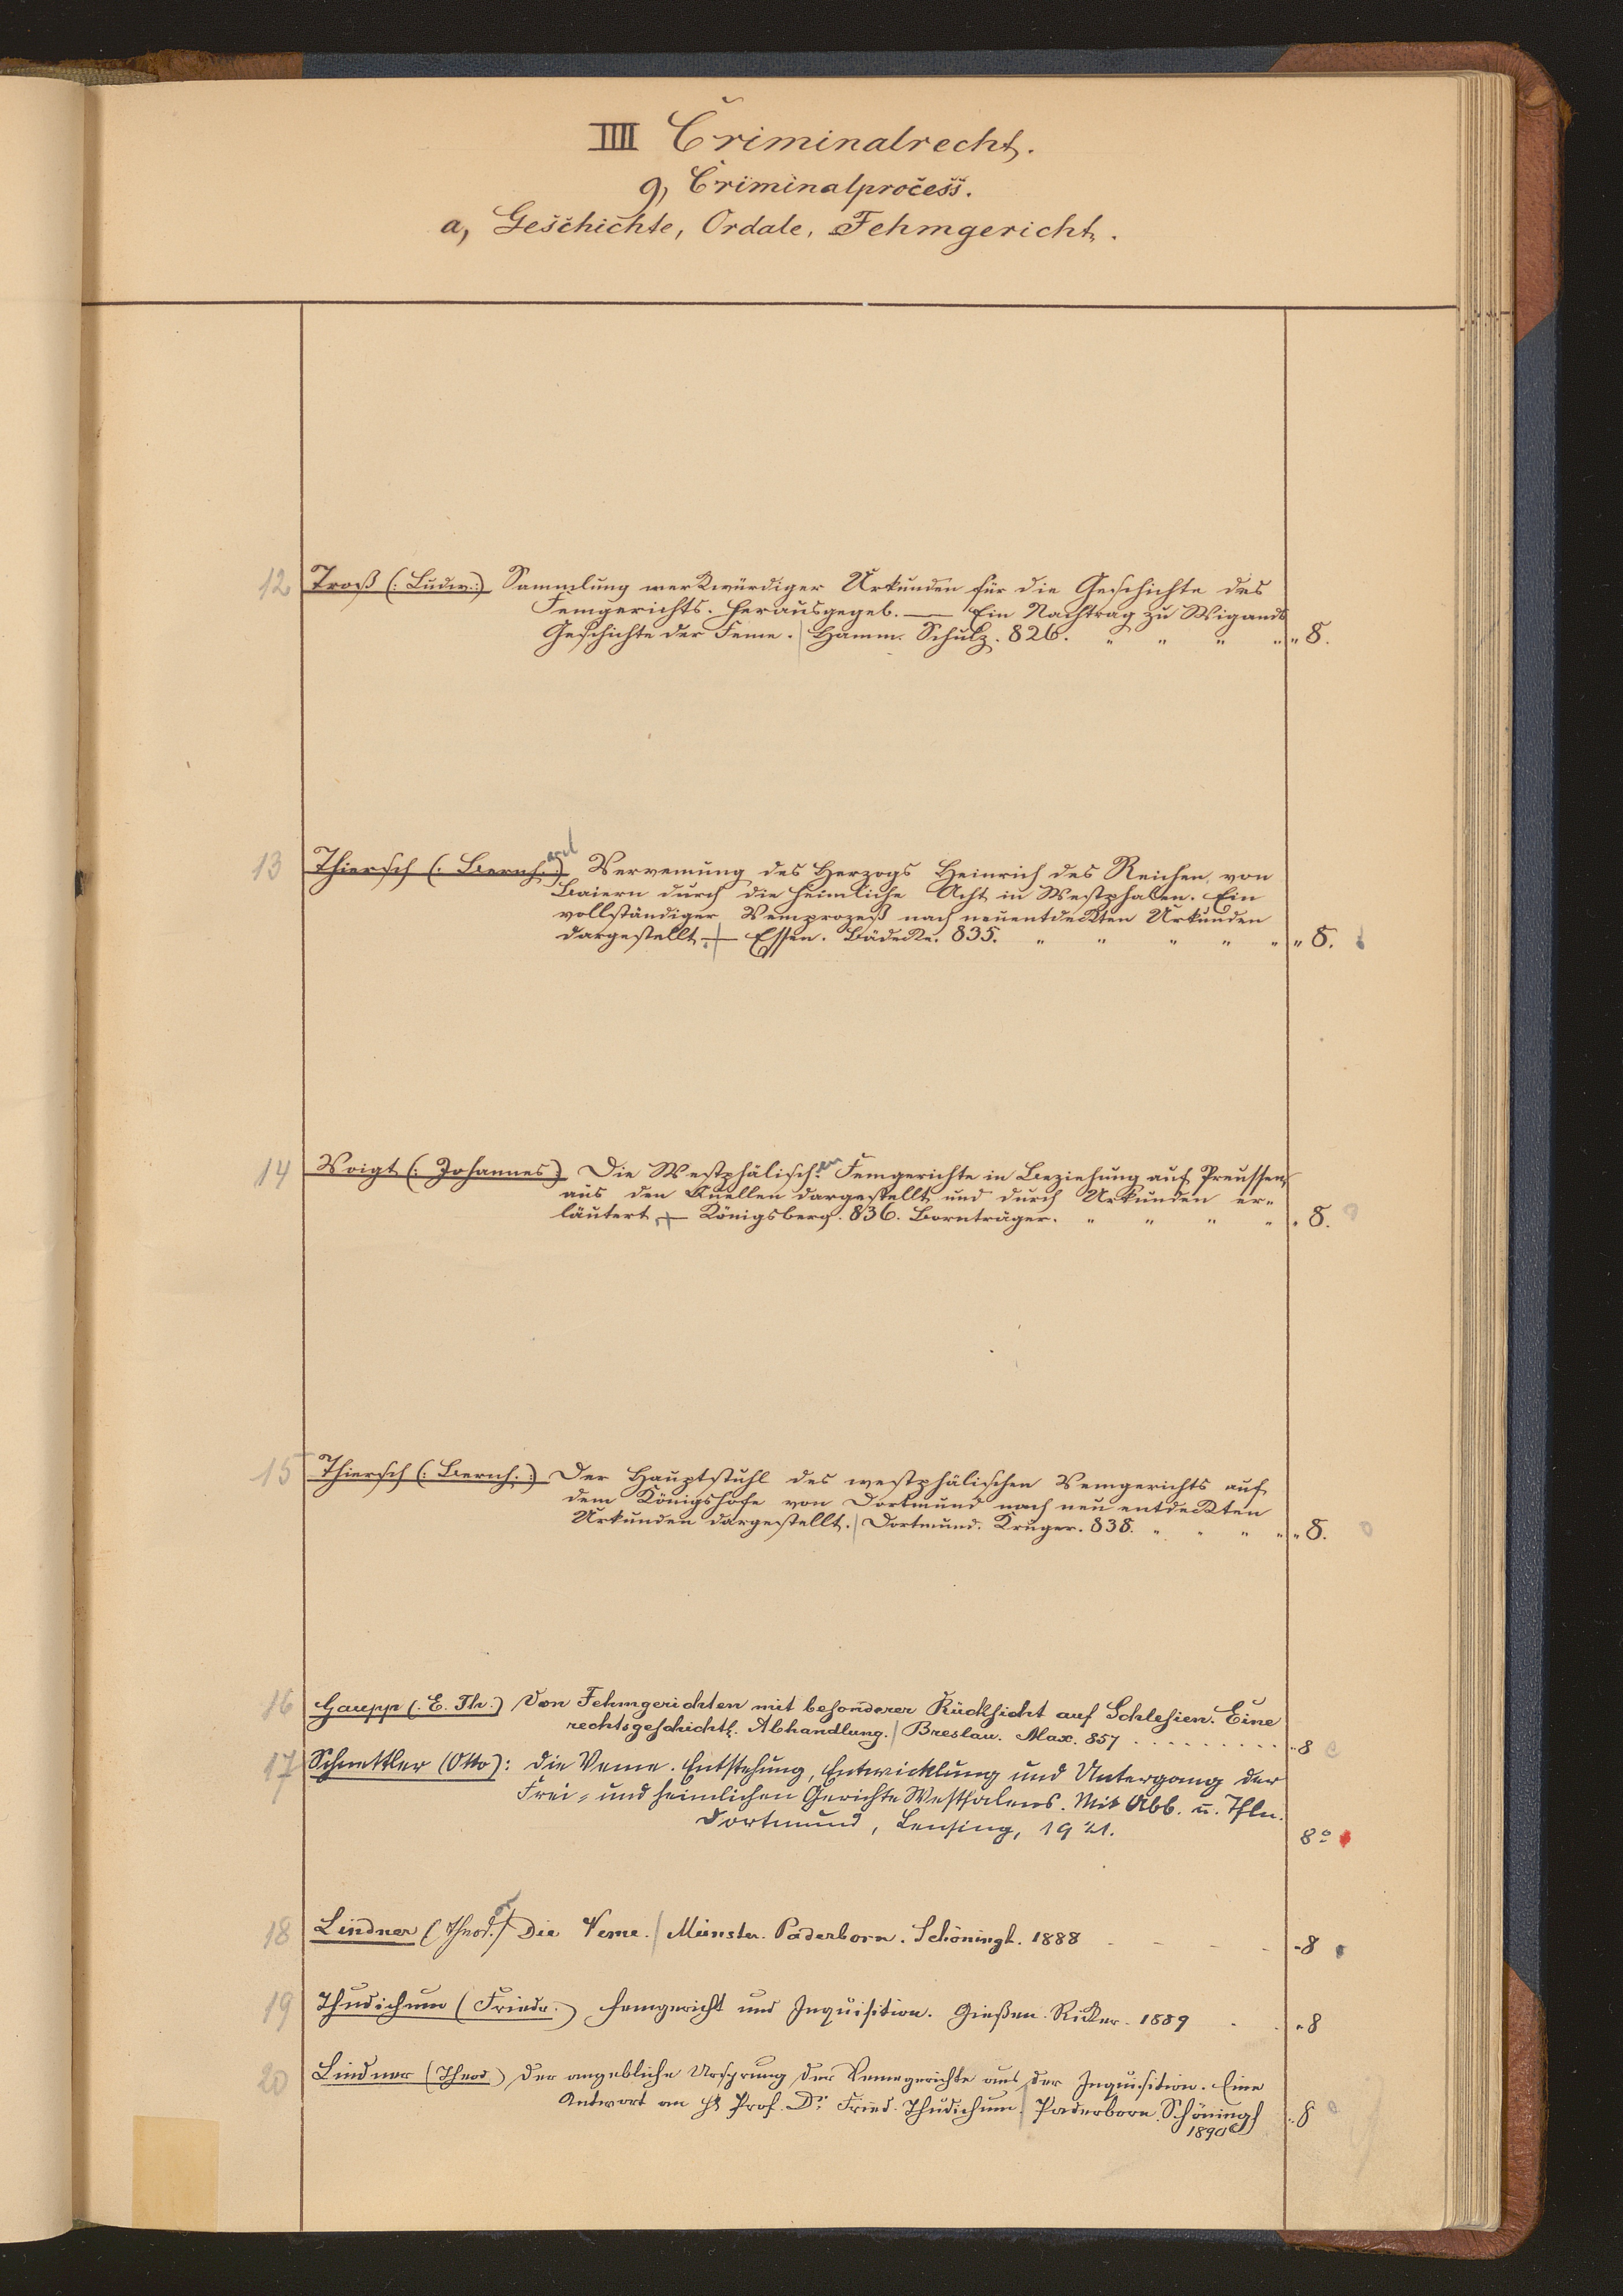 IIII Criminalrecht.
g, Criminalprocess.
a, Geschichte, Ordale, Fehmgericht.
12 Troß (: Ludw.:) Sammlung merkwürdiger Urkunden für die Geschichte des
Femgerichts. Herausgegeb. — Ein Nachtrag zu Wigands
Geschichte der Feme. | Hamm. Schulz. 826. " " " " " 8.
13 Thiersch (: Bernh. :) Vervemung des Herzogs Heinrich des Reichen von
Baiern durch die heimliche Acht in Westphalen. Ein
vollständiger Vemprozeß nach neuentdeckten Urkunden
dargestellt. | — Essen. Bädeker. 835. " " " " " " 8.
14 Voigt (: Johannes) Die Westphälischen Femgerichte in Beziehung auf Preussen,
aus den Quellen dargestellt und durch Urkunden er-
läutert. | — Königsberg. 836. Bornträger. " " " " " 8.
15 Thiersch (: Bernh. :) Der Hauptstuhl des westphälischen Vemgerichts auf
dem Königshofe von Dortmund nach neu entdeckten
Urkunden dargestellt. | Dortmund. Krüger. 838. " " " " " 8.
16 Gaupp (: E. Th.:) Von Fehmgerichten mit besonderer Rücksicht auf Schlesien. Eine
rechtsgeschichtl. Abhandlung. | Breslau. Max. 857 . . . . . . . . . " 8
17 Schnettler (Otto): Die Veme. Entstehung, Entwicklung und Untergang der
Frei- und heimlichen Gerichte Westfalens. Mit Abb. u. Tfln.
Dortmund, Lensing, 1921. 8°
18 Lindner (Theod.) Die Veme. | Münster. Paderborn. Schöningh. 1888 - - - - - 8
19 Thudichum (Friedr.) Femgericht und Inquisition. Gießen. Ricker. 1889 . . " 8
20 Lindner (Theod) Der angebliche Ursprung der Vemegerichte aus der Inquisition. Eine
Antwort an H Prof. Dr. Fried. Thudichum | Paderborn. Schöningh " 8
1890